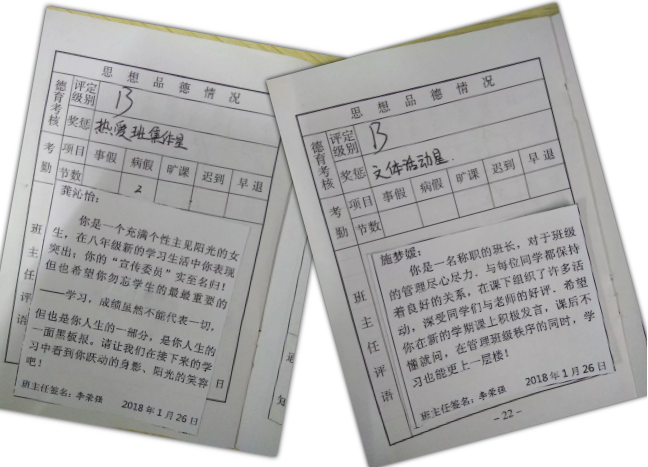 思想品德情况
德育考核
评定级别
B
奖惩
热爱班集体星
考勤
项目
事假
病假
旷课
迟到
早退
节数
2
班主任评语
龚沁怡：
你是一个充满个性主见阳光的女
生，在八年级新的学习生活中你表现
突出；你的“宣传委员”实至名归！
但也希望你勿忘学生的最最重要的
——学习，成绩虽然不能代表一切，
但也是你人生的一部分，是你人生的
一面黑板报。请让我们在接下来的学
习中看到你跃动的身影、阳光的笑容
吧！
班主任签名：李荣强
2018年1月26日
日
知
思想品德情况
德育考核
评定级别
B
奖惩
文体活动星
考勤
项目
事假
病假
旷课
迟到
早退
节数
班主任评语
施梦媛：
你是一名称职的班长，对于班级
的管理尽心尽力．与每位同学都保持
着良好的关系，在课下组织了许多活
动，深受同学们与老师的好评．希望
你在新的学期课上积极发言，课后不
懂就问，在管理班级秩序的同时，学
习也能更上一层楼！
班主任签名：李荣强
2018年1月26日
日
- 22 -